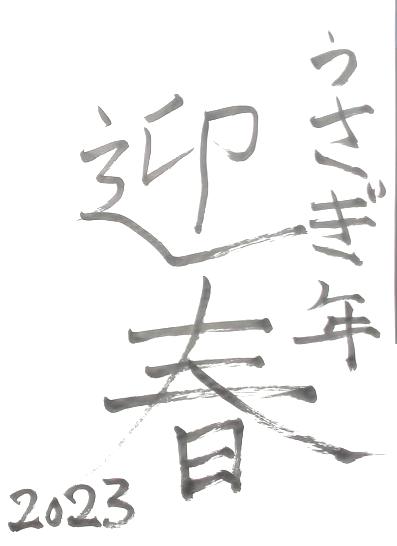 うさぎ年
迎春
2023